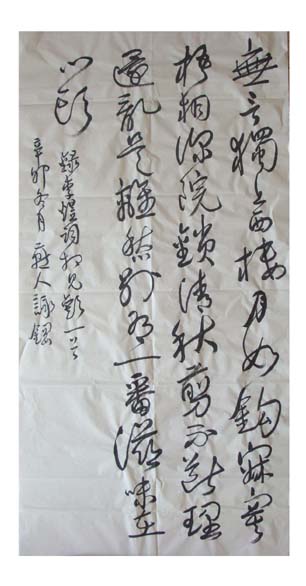 無言獨上西樓月如鉤寂寞
梧桐深院鎖清秋剪不斷理
還亂是離愁別一番滋味在
心頭
錄李煜詞相見歡一首
辛卯冬月人詠